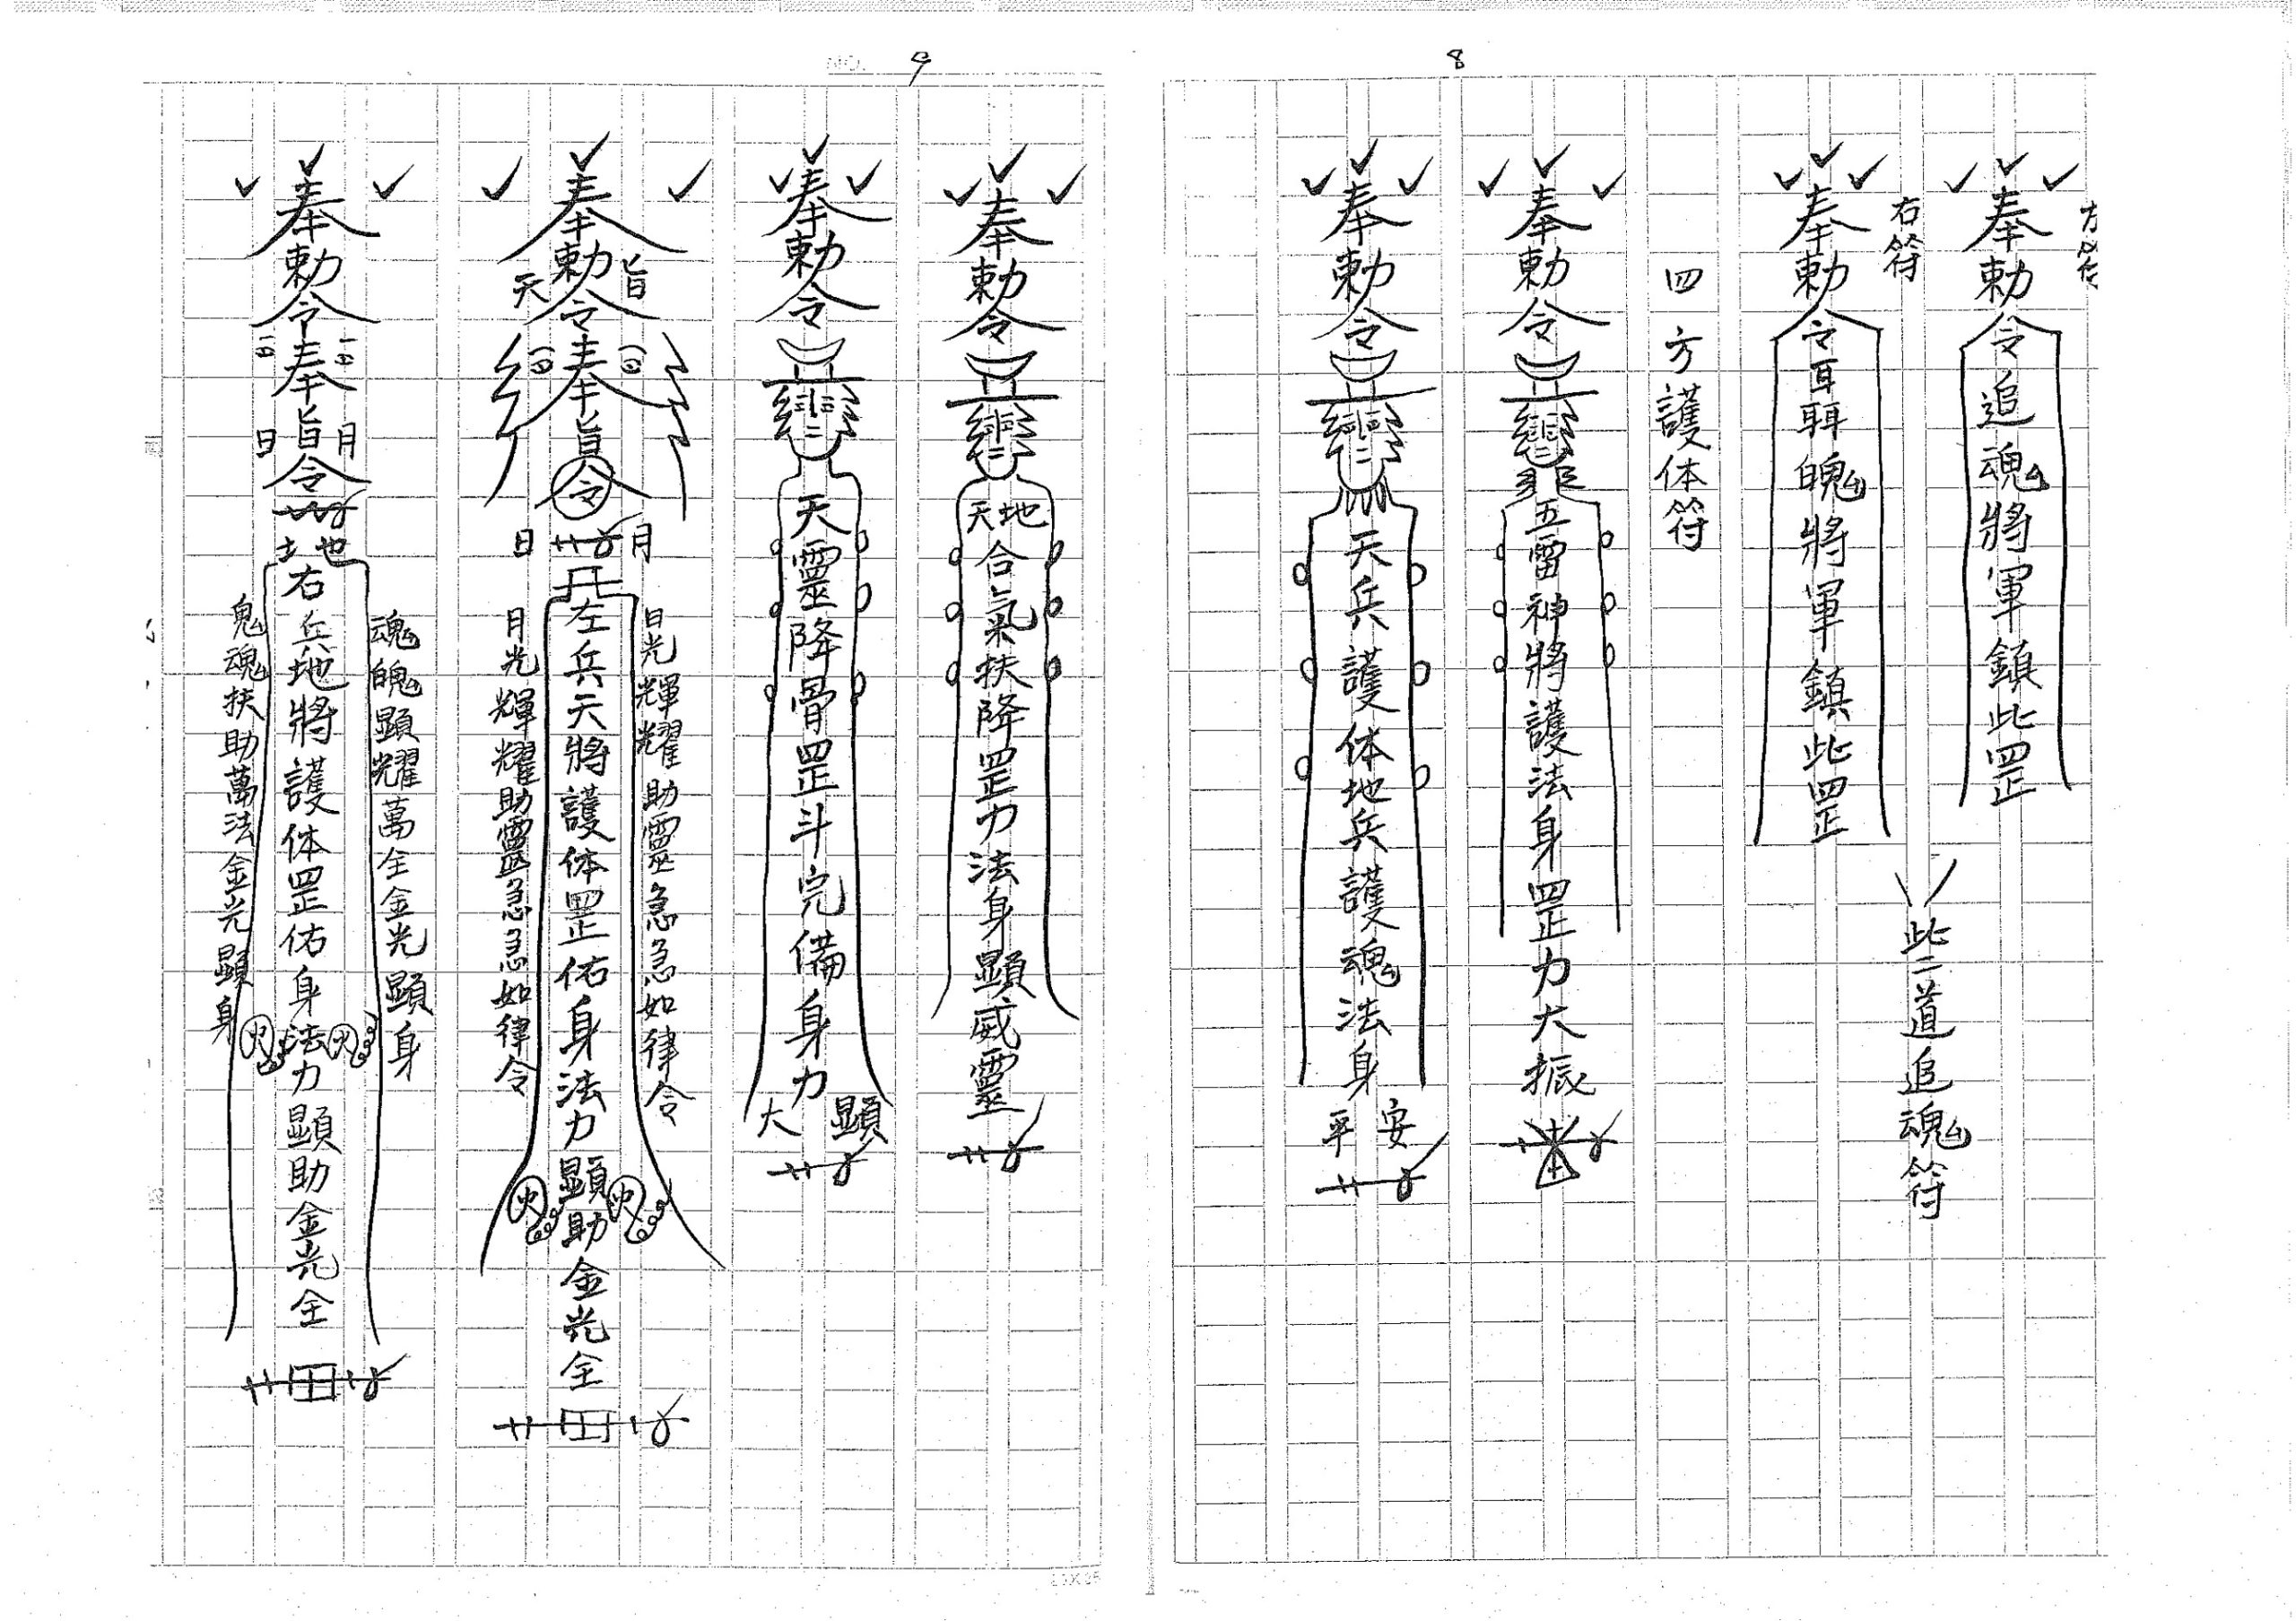 8
左符
奉勅令追魂將軍鎮此罡
右符
奉勅令耳聑魄將軍鎮此罡
此二道追魂符
四方護体符
奉勅令
五雷神將護法身罡力大振
奉勅令
天兵護体地兵護魂法身
平安
9
奉勅令
天地合氣扶降罡力法身顯威靈
奉勅令
天靈降骨罡斗完備身力
大顯
奉勅令奉旨令
天旨
日月
左兵天將護体罡佑身法力顯助金光全
日光輝耀助靈急急如律令
月光輝耀助靈急急如律令
奉勅令奉旨令
日月
土地
右兵地將護体罡佑身法力顯助金光全
魂魄顯耀萬全金光顯身
鬼魂扶助萬法金光顯身